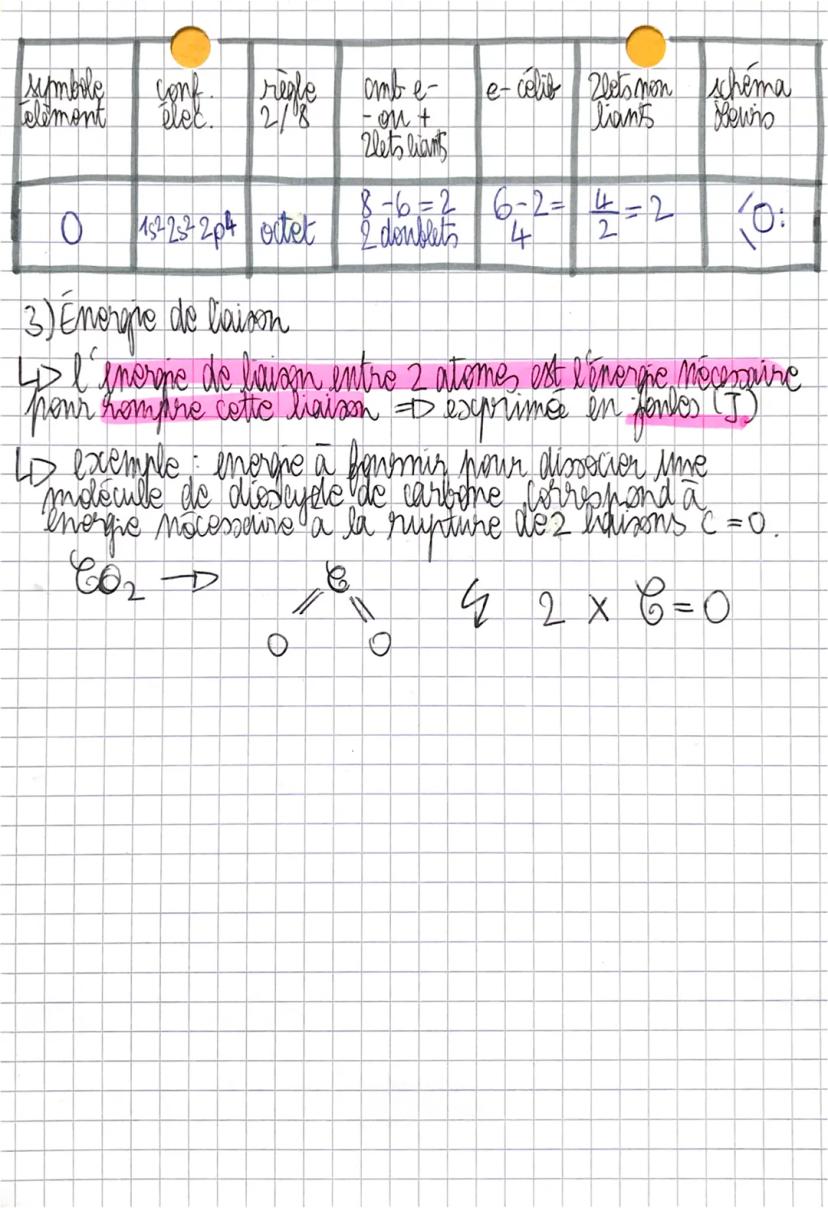 symbole élément
conf. élec.
règle 2/8
amb e- - ou + 2lets liants
e- célib
2lets non liants
schéma
O
1s² 2s² 2p⁴
octet
8-6=2 2 doublets
6-2=4
4/2=2
O:
3) Énergie de liaison
↳ l'énergie de liaison entre 2 atomes est l'énergie nécessaire
pour rompre cette liaison ⇒ exprimée en joules (J)
↳ exemple : énergie à fournir pour dissocier une
molécule de dioxyde de carbone correspond à
énergie nécessaire à la rupture de 2 liaisons C=O.
CO₂ → C 2 x C=O
O O